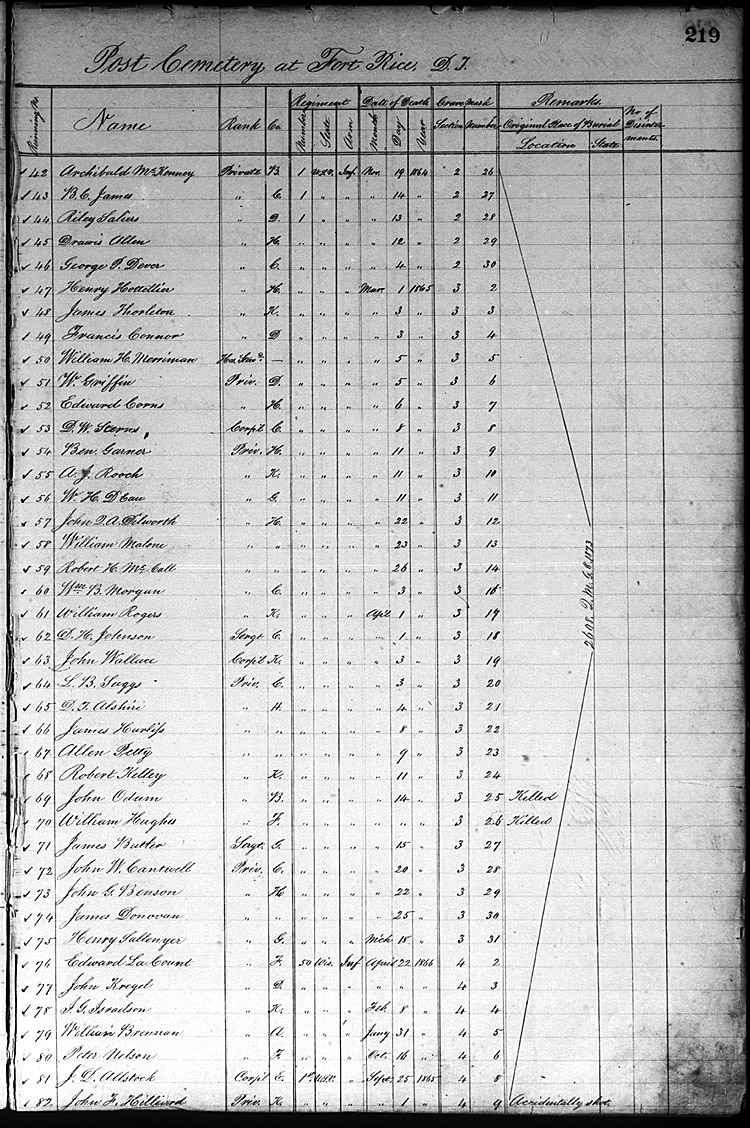 219
Post Cemetery at Fort Rice, D. T.
Regiment Date of Death Grave Mark Remarks.
Running No. Name Rank Co. Number State Arm Month Day Year Section Number Original Place of Burial No. of Disinterments.
Location State
42 Archibald McKenney Private B. 1 U.S.V. Inf. Nov. 19 1864 2 26
43 B. C. James " C. 1 " " " 14 " 2 27
44 Riley Saliers " D. 1 " " " 13 " 2 28
45 Drawis Allen " H. " " " " 12 " 2 29
46 George P. Dever " C. " " " " 4 " 2 30
47 Henry Hottellier " H. " " " Mar. 1 1865 3 2
48 James Thorleton " K. " " " " 3 " 3 3
49 Francis Connor " D " " " " 3 " 3 4
50 William H. Merriman — " " " " 5 " 3 5
51 W. Griffin Priv. D. " " " " 5 " 3 6
52 Edward Corns " H. " " " " 6 " 3 7
53 D. W. Sterns Corpl C. " " " " 8 " 3 8
54 Ben. Garner Priv. H. " " " " 11 " 3 9
55 A. J. Rooch " K. " " " " 11 " 3 10
56 W. H. " G. " " " " 11 " 3 11
57 John Q. A. Dilworth " H. " " " " 22 " 3 12
58 William Malone " " " " " " 23 " 3 13
59 Robert H. McCall " " " " " " 26 " 3 14
60 Wm. B. Morgan " C. " " " " 3 " 3
61 William Rogers " K. " " " Apl. 1 " 3 17
62 D. H. Johnson Sergt C. " " " " 1 " 3 18
63 John Wallace Corpl K. " " " " 3 " 3 19
64 L. B. Suggs Priv. C. " " " " 3 " 3 20
65 D. T. Alshire " H. " " " " 4 " 3 21
66 James Hurliss " " " " " " 8 " 3 22
67 Allen Petty " " " " " " 9 " 3 23
68 Robert Kelley " K. " " " " 11 " 3 24
69 John Odum " B. " " " " 14 " 3 25 Killed
70 William Hughes " F. " " " " " " 3 26 Killed
71 James Butler Sergt. G. " " " " 15 " 3 27
72 John W. Cantwell Priv. C. " " " " 20 " 3 28
73 John G. Benson " H " " " " 22 " 3 29
74 James Donovan " " " " " " 25 " 3 30
75 Henry Sallenyer " G. " " " Mich 15 " 3 31
76 Edward La Count " F. 50 Wis. Inf April 22 1866 4 2
77 John Kregel " D. " " " " " " 4 3
78 J. G. Isradson " K. " " " Feb. 8 " 4 4
79 William Brennan " A. " " " Jany 31 " 4 5
80 Peter Nelson " F. " " " Oct. 16 " 4 6
81 J. D. Allstock Corpl E. 1st U.S.V. " Sept. 25 1865 4 8
82 John F. Hilliard Priv. K. " " " " 1 " 4 9 Accidentally shot.
2608. Q.M.G.O. 1873